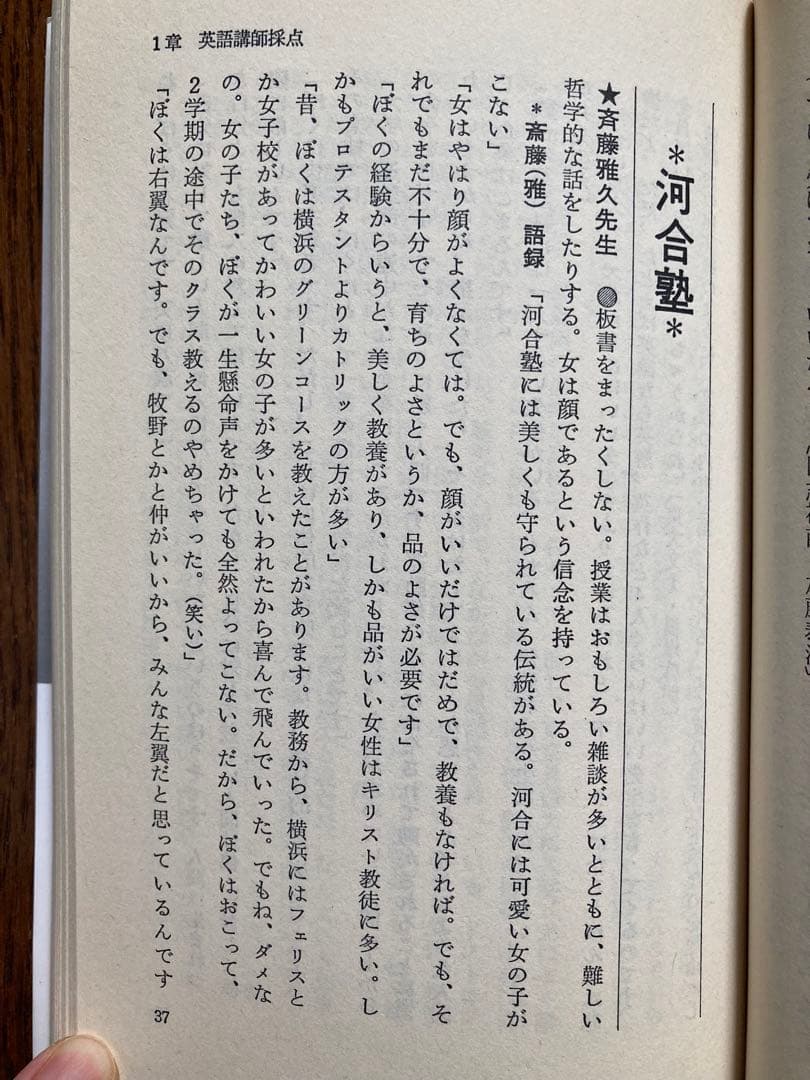 1章 英語講師採点
*河合塾*
★斉藤雅久先生 ●板書をまったくしない。授業はおもしろい雑談が多いとともに、難しい
哲学的な話をしたりする。女は顔であるという信念を持っている。
*斎藤(雅)語録 「河合塾には美しくも守られている伝統がある。河合には可愛い女の子が
こない」
「女はやはり顔がよくなくては。でも、顔がいいだけではだめで、教養もなければ。でも、そ
れでもまだ不十分で、育ちのよさというか、品のよさが必要です」
「ぼくの経験からいうと、美しく教養があり、しかも品がいい女性はキリスト教徒に多い。し
かもプロテスタントよりカトリックの方が多い」
「昔、ぼくは横浜のグリーンコースを教えたことがあります。教務から、横浜にはフェリスと
か女子校があってかわいい女の子が多いといわれたから喜んで飛んでいった。でもね、ダメな
の。女の子たち、ぼくが一生懸命声をかけても全然よってこない。だから、ぼくはおこって、
2学期の途中でそのクラス教えるのやめちゃった。(笑い)」
「ぼくは右翼なんです。でも、牧野とかと仲がいいから、みんな左翼だと思っているんです
37